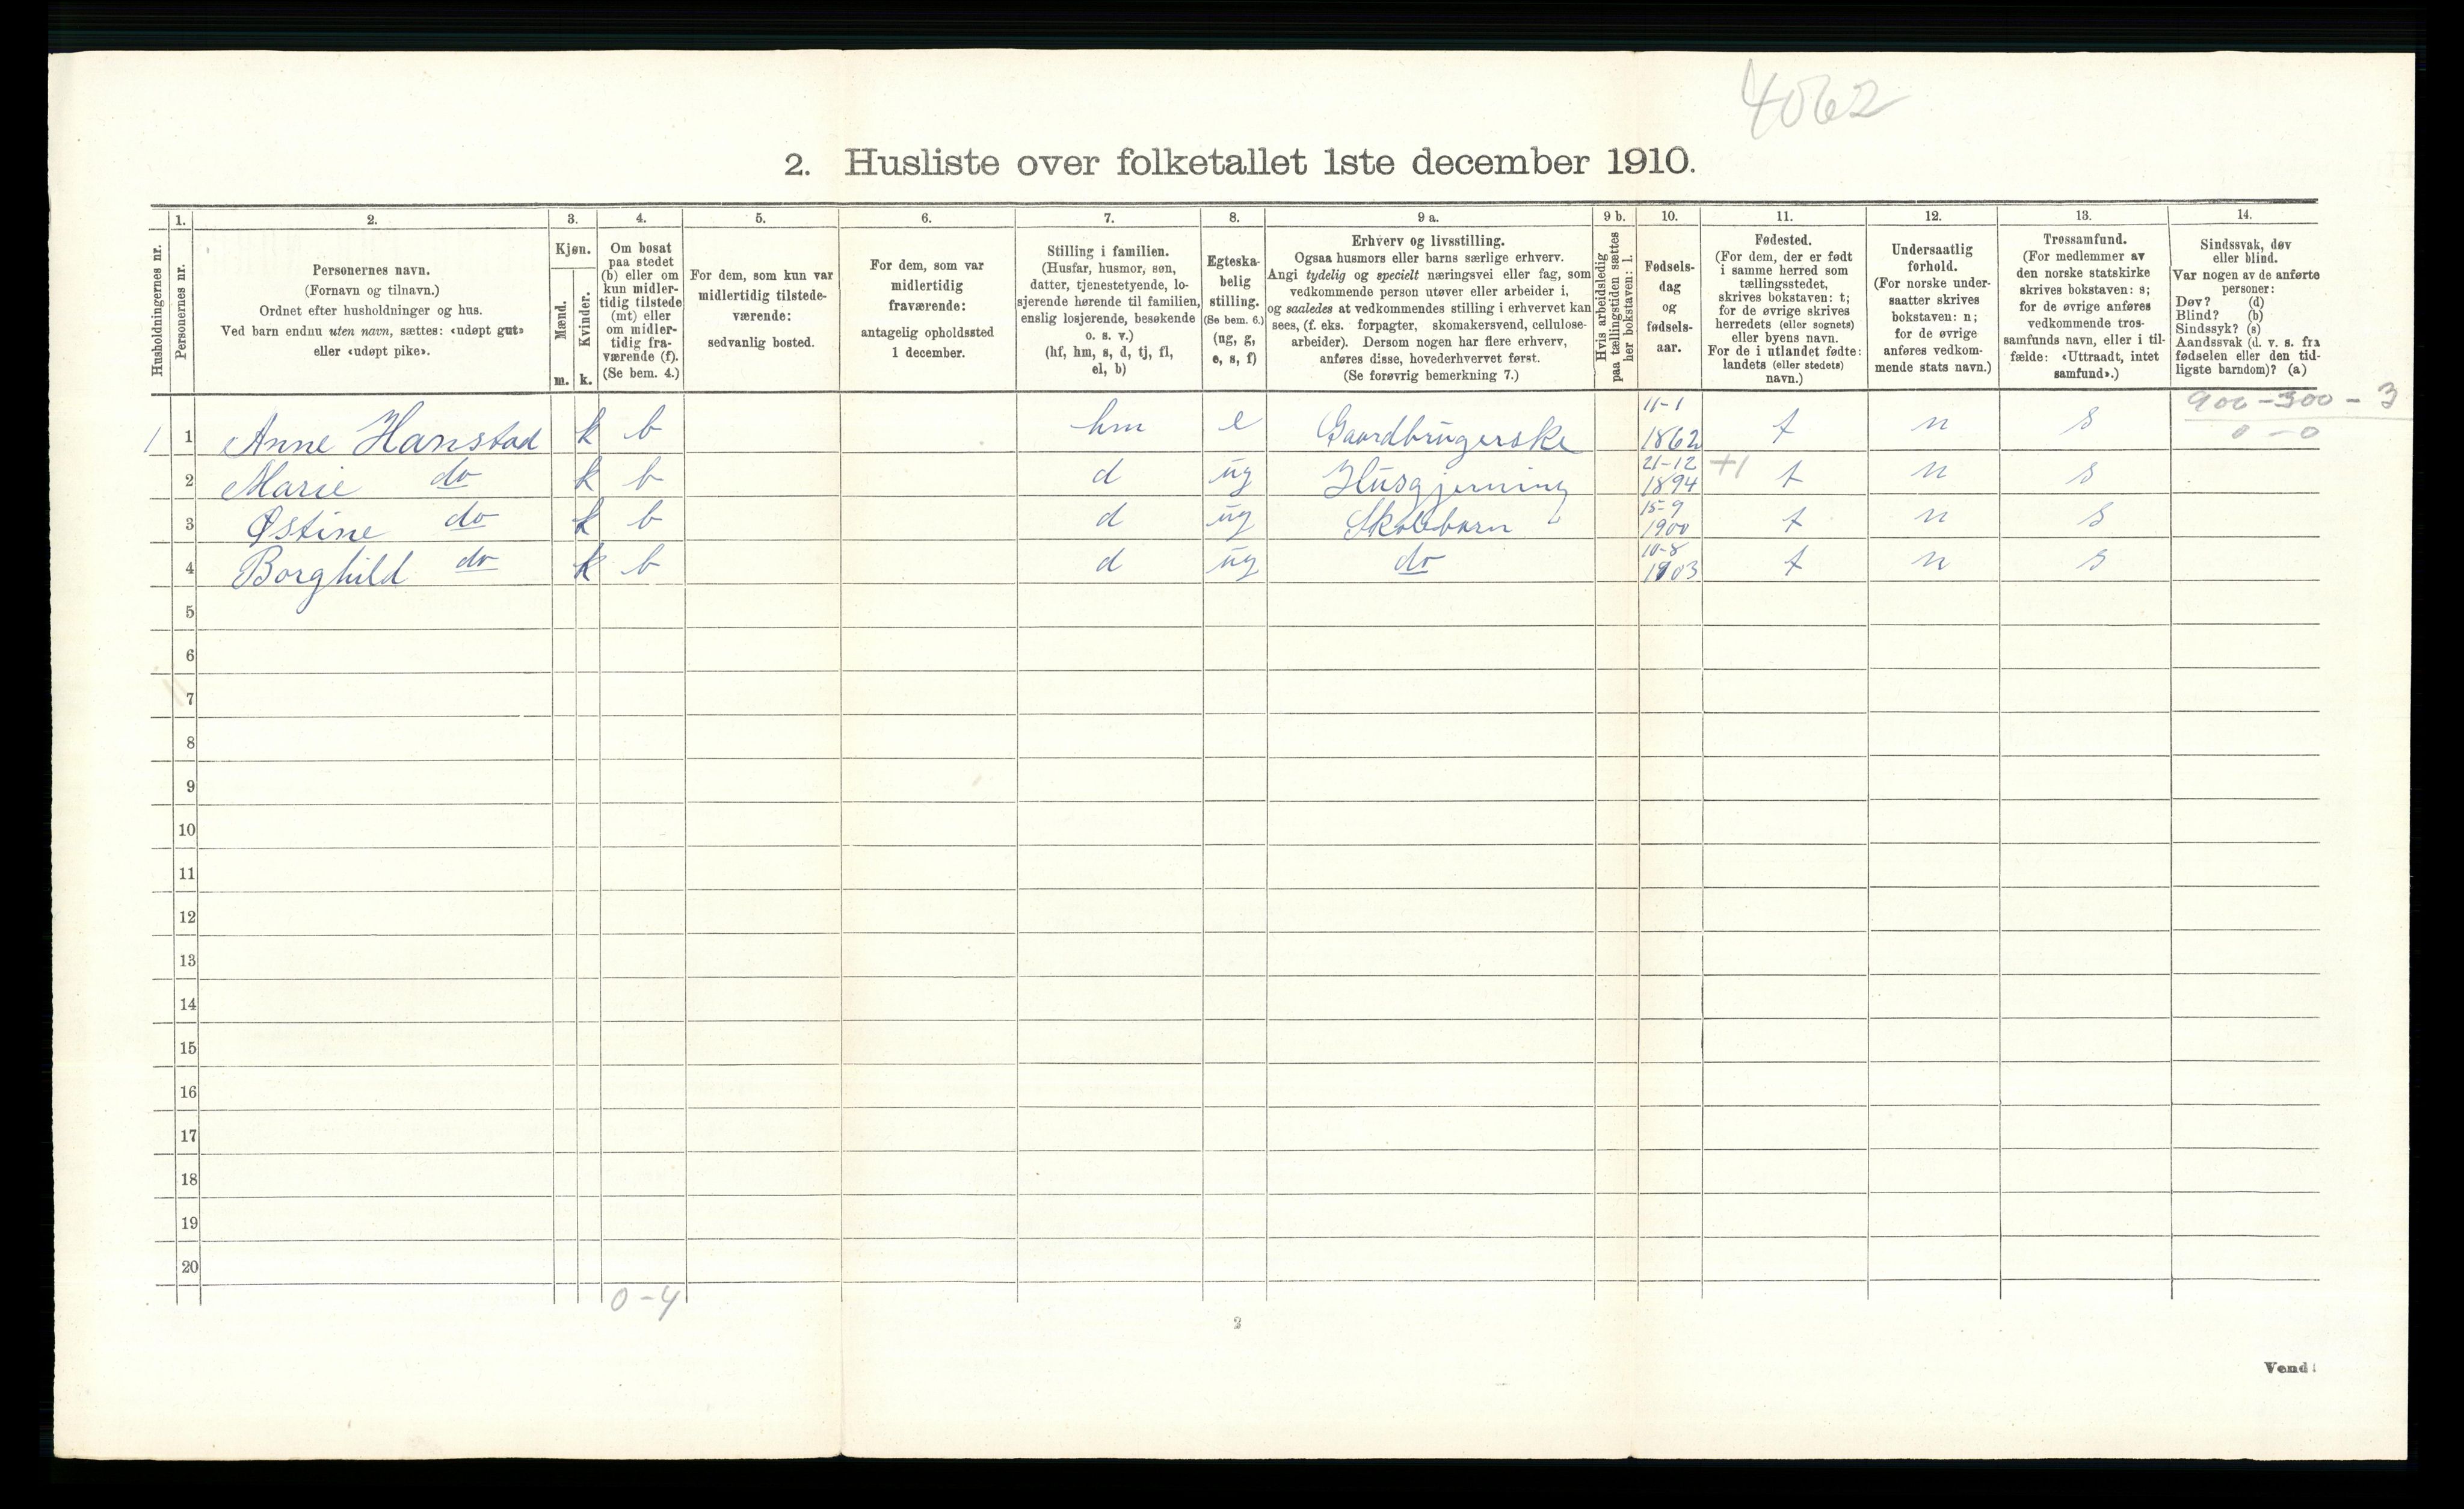 4062
2. Husliste over folketallet 1ste december 1910.
Husholdningernes nr.
1.
Personernes nr.
2.
Personernes navn.
(Fornavn og tilnavn.)
Ordnet efter husholdninger og hus.
Ved barn endnu uten navn, sættes: «udøpt gut»
eller «udøpt pike».
3.
Kjøn.
Mænd.
Kvinder.
m. k.
4.
Om bosat
paa stedet
(b) eller om
kun midler-
tidig tilstede
(mt) eller
om midler-
tidig fra-
værende (f).
(Se bem. 4.)
5.
For dem, som kun var
midlertidig tilstede-
værende:
sedvanlig bosted.
6.
For dem, som var
midlertidig
fraværende:
antagelig opholdssted
1 december.
7.
Stilling i familien.
(Husfar, husmor, søn,
datter, tjenestetyende, lo-
sjerende hørende til familien,
enslig losjerende, besøkende
o. s. v.)
(hf, hm, s, d, tj, fl,
el, b)
8.
Egteska-
belig
stilling.
(Se bem. 6.)
(ug, g,
e, s, f)
9 a.
Erhverv og livsstilling.
Ogsaa husmors eller barns særlige erhverv.
Angi tydelig og specielt næringsvei eller fag, som
vedkommende person utøver eller arbeider i,
og saaledes at vedkommendes stilling i erhvervet kan
sees, (f. eks. forpagter, skomakersvend, cellulose-
arbeider). Dersom nogen har flere erhverv,
anføres disse, hovederhvervet først.
(Se forøvrig bemerkning 7.)
9 b.
Hvis arbeidsledig
paa tællingstiden sættes
her bokstaven: l.
10.
Fødsels-
dag
og
fødsels-
aar.
11.
Fødested.
(For dem, der er født
i samme herred som
tællingsstedet,
skrives bokstaven: t;
for de øvrige skrives
herredets (eller sognets)
eller byens navn.
For de i utlandet fødte:
landets (eller stedets)
navn.)
12.
Undersaatlig
forhold.
(For norske under-
saatter skrives
bokstaven: n;
for de øvrige
anføres vedkom-
mende stats navn.)
13.
Trossamfund.
(For medlemmer av
den norske statskirke
skrives bokstaven: s;
for de øvrige anføres
vedkommende tros-
samfunds navn, eller i til-
fælde: «Uttraadt, intet
samfund».)
14.
Sindssvak, døv
eller blind.
Var nogen av de anførte
personer:
Døv? (d)
Blind? (b)
Sindssyk? (s)
Aandssvak (d. v. s. fra
fødselen eller den tid-
ligste barndom)? (a)
900 - 300 - 3
0 - 0
1 1 Anne Hanstad k b hm e Gaardbrugerske 11-1 1862 t n s
2 Marie do k b d ug Husgjerning 21-12 1894 +1 t n s
3 Østine do k b d ug Skolebarn 15-9 1900 t n s
4 Borghild do k b d ug do 10-8 1903 t n s
5
6
7
8
9
10
11
12
13
14
15
16
17
18
19
20
0-4
2
Vend!